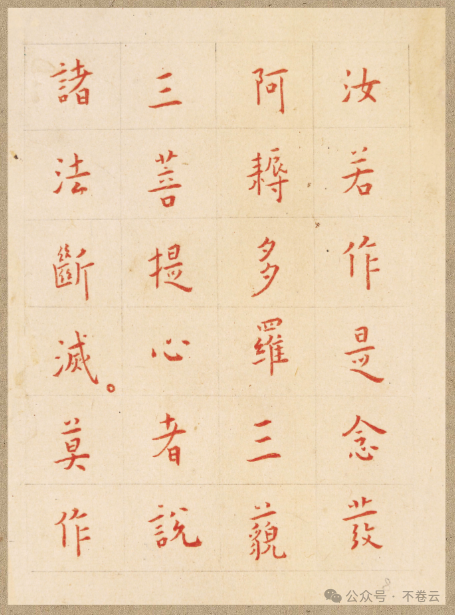 汝若作是念發
阿耨多羅三藐
三菩提心者說
諸法斷滅。莫作
公众号·不卷云